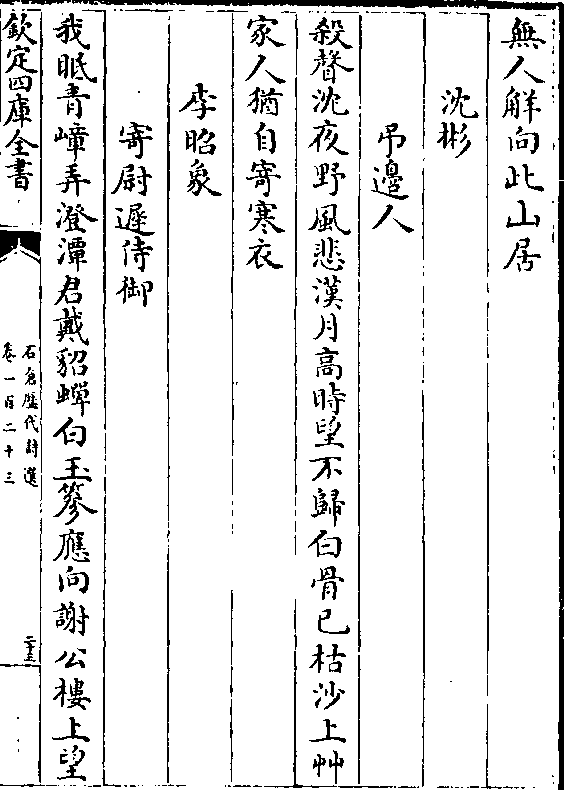 無人解向此山居
沈彬
弔邊人
殺聲沈夜野風悲漢月高時望不歸白骨已枯沙上艸
家人猶自寄寒衣
李昭象
寄尉遲侍御
我眠青嶂弄澄潭君戴貂蟬白玉篸應向謝公樓上望
欽定四庫全書
石倉歷代詩選
卷一百二十三
二十三